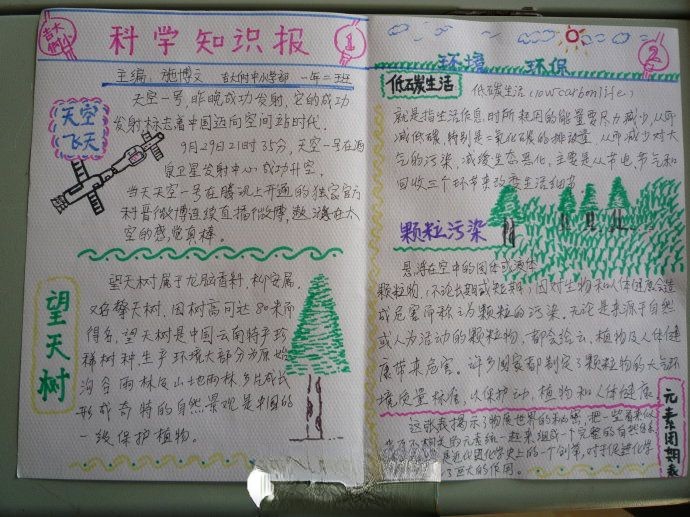 科学知识报
1
主编：施博文 吉大附中小学部 一年二班
天空
飞天
天空一号,昨晚成功发射,它的成功
发射标志着中国迈向空间站时代。
9月29日21时35分,天空一号在酒
泉卫星发射中心成功升空。
当天天空一号在腾讯上开通的独家官方
科普微博连续直播个微博,遨游在太
空的感觉真棒。
望天树
望天树属于龙脑香料,柳安属。
又名擎天树,因树高可达80米而
得名,望天树是中国云南特产珍
稀树种,生产环境大部分为原始
沟谷雨林及山地雨林,多片成长
形成奇特的自然景观是中国的
一级保护植物。
2
环境 环保
低碳生活
低碳生活(lowcarbonlife)
就是指生活作息时所耗用的能量要尽力减少,从而
减低碳,特别是二氧化碳的排放量,从而减少对大
气的污染,减缓生态恶化,主要是从节电节气和
回收三个环节来改变生活细节。
颗粒污染
悬浮在空中的固体或液体
颗粒物,不论长期或短期,因对生物和人体健康会造
成危害而称之为颗粒的污染,无论是来源于自然
或人为活动的颗粒物,都会给动、植物及人体健
康带来危害。许多国家都制定了颗粒物的大气环
境质量标准,以保护动、植物和人体健康。
元素周期表
这张表揭示了物质世界的秘密,把一些看来似
乎互不相关的元素统一起来组成一个完整的自然体系
是近代化学史上的一个创举,对于促进化学
了巨大的作用。